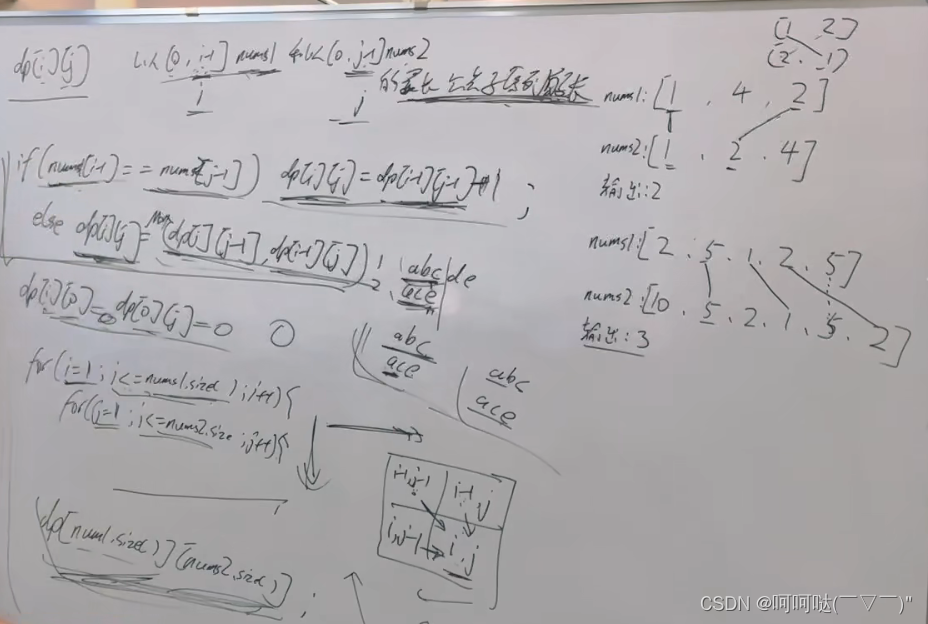 dp[i][j] 以[0, i-1] nums1 和以[0, j-1] nums2
的最长公共子序列 长
i j
if(nums[i-1] == nums[j-1]) dp[i][j] = dp[i-1][j-1]+1 ;
else dp[i][j] = Max(dp[i][j-1], dp[i-1][j]) ;
abc de
ace
dp[i][0]=0 dp[0][j]=0 0
abc
ace
abc
ace
for(i=1; i<=nums1.size( ); i++){
for(j=1; i<=nums2.size ; j++){
i-1,j-1 i-1, j
i,j-1 i, j
dp[num1.size()][nums2.size()] ;
[1 2]
(2, 1)
nums1: [1, 4, 2]
nums2: [1, 2, 4]
输出: 2
nums1: [2, 5, 1, 2, 5]
nums2: [10, 5, 2, 1, 5, 2]
输出: 3
CSDN @呵呵哒(￣▽￣)"